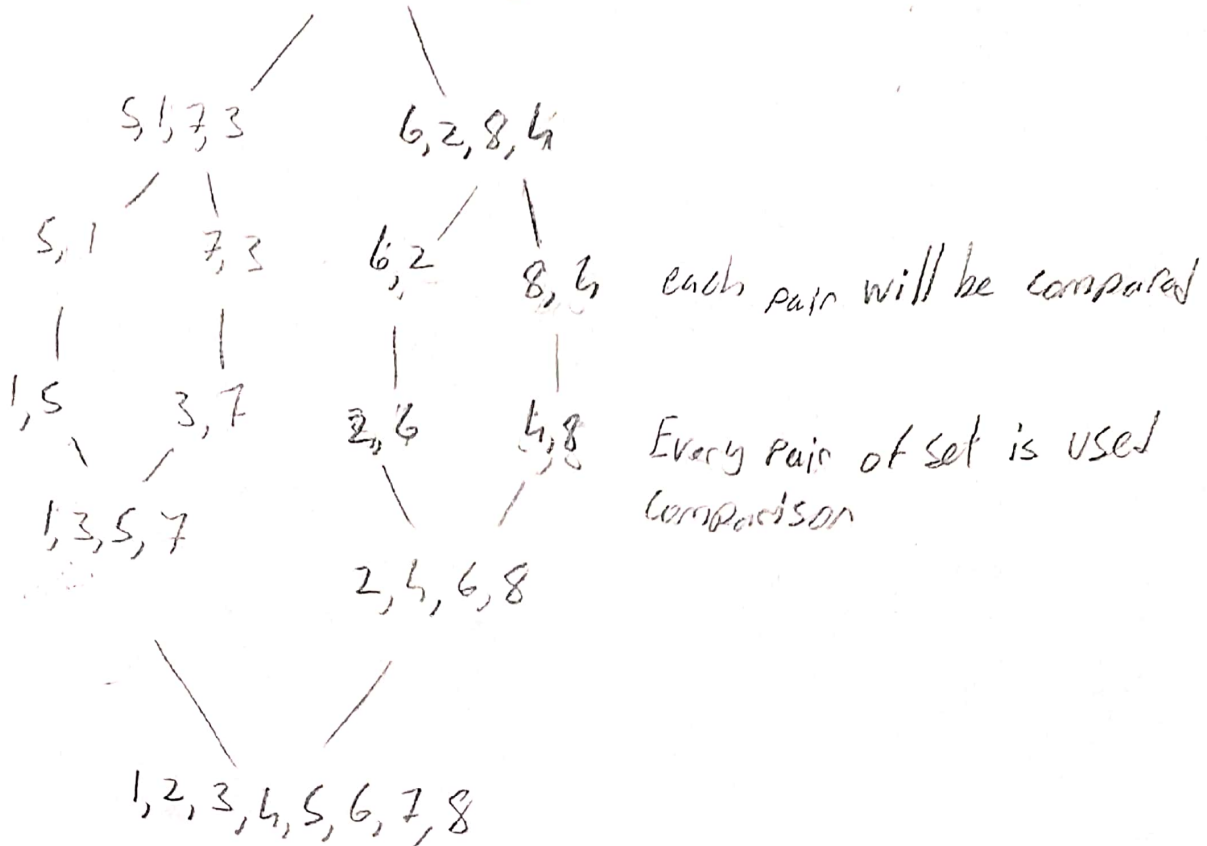 5,1,7,3 6,2,8,4
5,1 7,3 6,2 8,4 each pair will be compared
1,5 3,7 2,6 4,8 Every pair of set is used
comparison
1,3,5,7
2,4,6,8
1,2,3,4,5,6,7,8